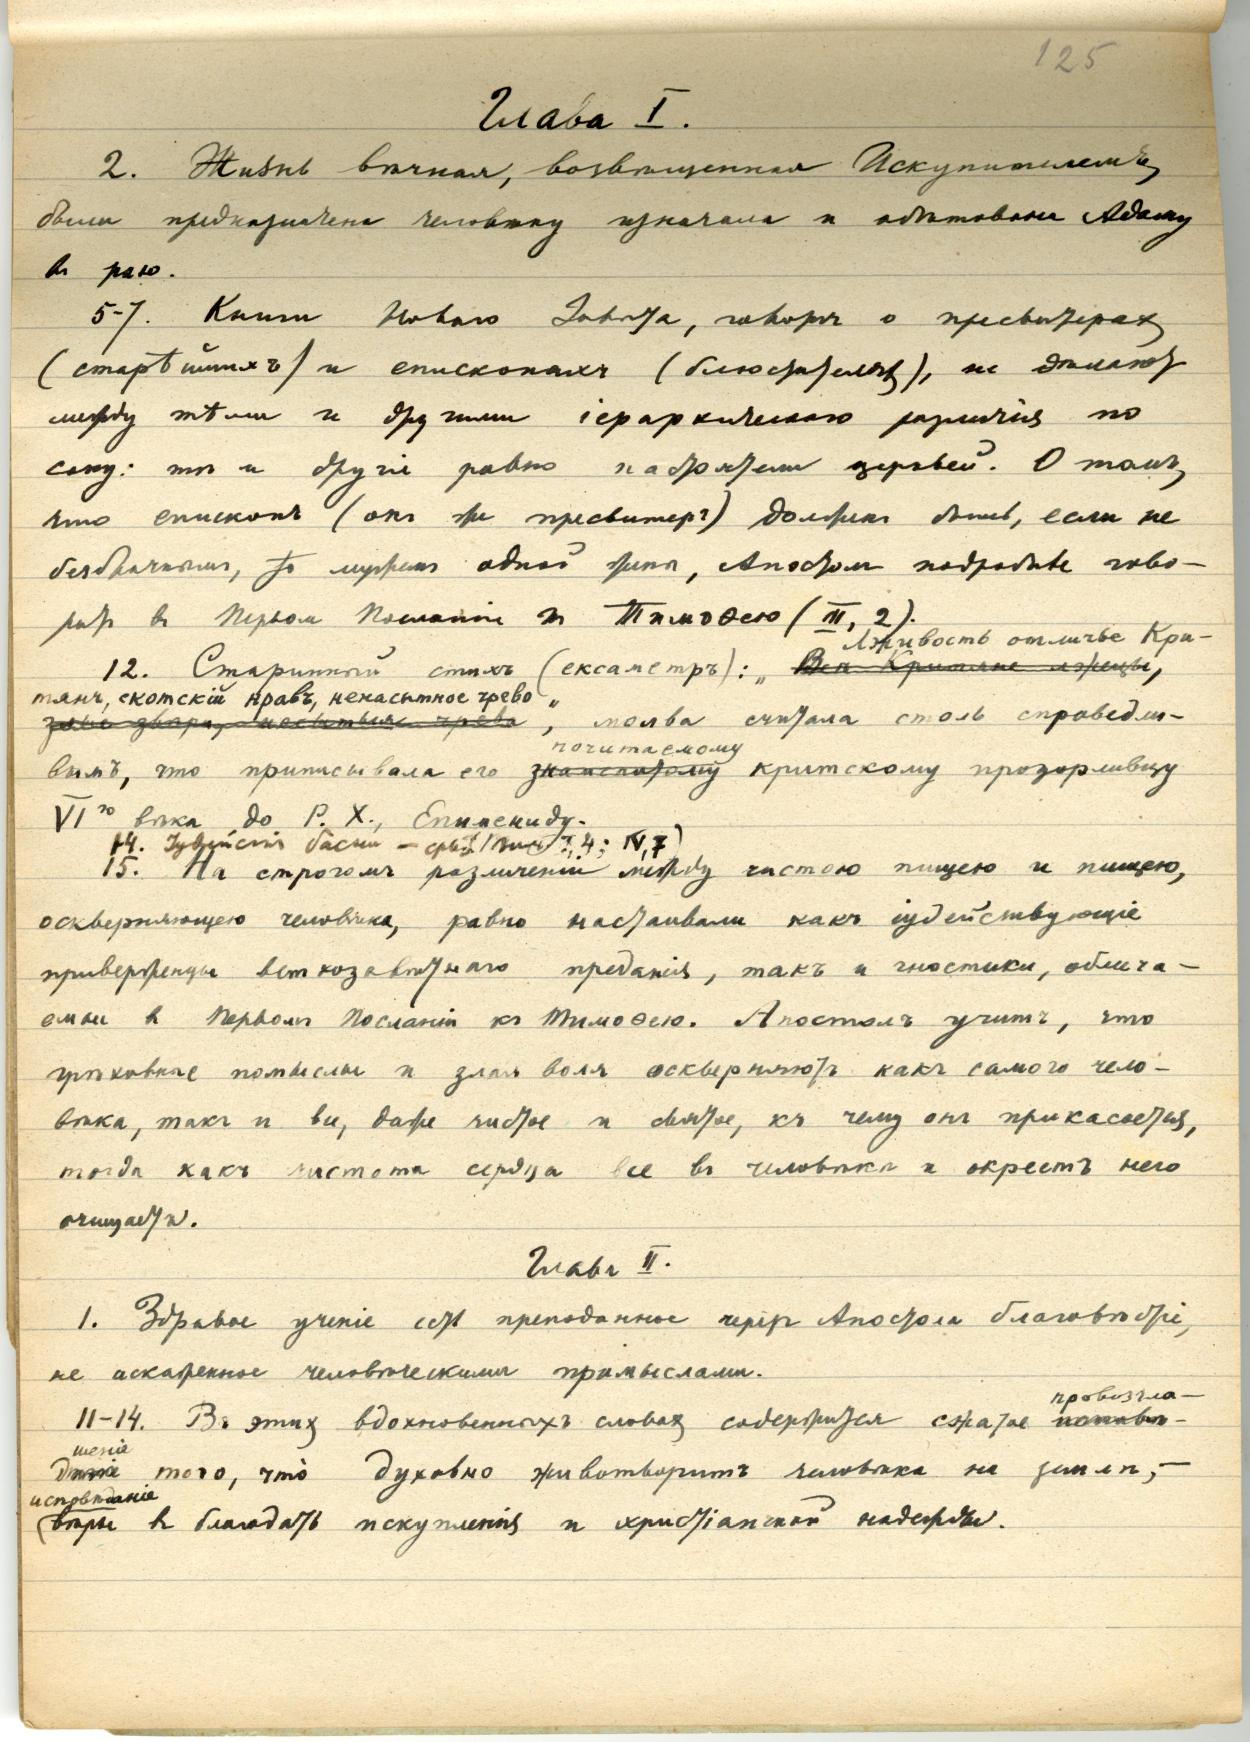 125
Глава I.
2. Жизнь вѣчная, возвѣщенная Искупителемъ,
была предназначена человѣку изначала и обѣтована Адаму
въ раю.
5-7. Книги Новаго Завѣта, говоря о пресвитерахъ
(старѣйшихъ) и епископахъ (блюстителяхъ), не дѣлаютъ
между тѣми и другими іерархическаго различія по
сану: тѣ и другіе равно настоятели церквей. О томъ,
что епископъ (онъ же пресвитеръ) долженъ быть, если не
безбрачнымъ, то мужемъ одной жены, Апостолъ подробнѣе гово-
ритъ въ Первомъ Посланіи къ Тимоѳею (III, 2).
Лживость отличье Кри-
12. Старинный стихъ (ексаметръ): „ Всѣ Критяне лжецы,
тянъ, скотскій нравъ, ненасытное чрево “
злые звѣри, несытыя чрева, молва считала столь справедли-
почитаемому
вымъ, что приписывала его знаменитому критскому прозорливцу
VIго вѣка до Р. Х., Епимениду.
14. Іудейскія басни — срв. I Тим I, 4; IV, 7)
15. На строгомъ различеніи между чистою пищею и пищею,
оскверняющею человѣка, равно настаивали какъ іудействующіе
приверженцы ветхозавѣтнаго преданія, такъ и гностики, облича-
емые въ Первомъ Посланіи къ Тимоѳею. Апостолъ учитъ, что
грѣховные помыслы и злая воля оскверняютъ какъ самого чело-
вѣка, такъ и все, даже чистое и святое, къ чему онъ прикасается,
тогда какъ чистота сердца все въ человѣкѣ и окрестъ него
очищаетъ.
Глава II.
1. Здравое ученіе есть преподанное черезъ Апостола благовѣстіе,
не искаженное человѣческими примыслами.
провозгла-
11-14. Въ этихъ вдохновенныхъ словахъ содержится сжатое исповѣ-
шеніе
даніе того, что духовно животворитъ человѣка на землѣ, —
исповѣданіе
вѣры въ благодать искупленія и христіанской надежды.